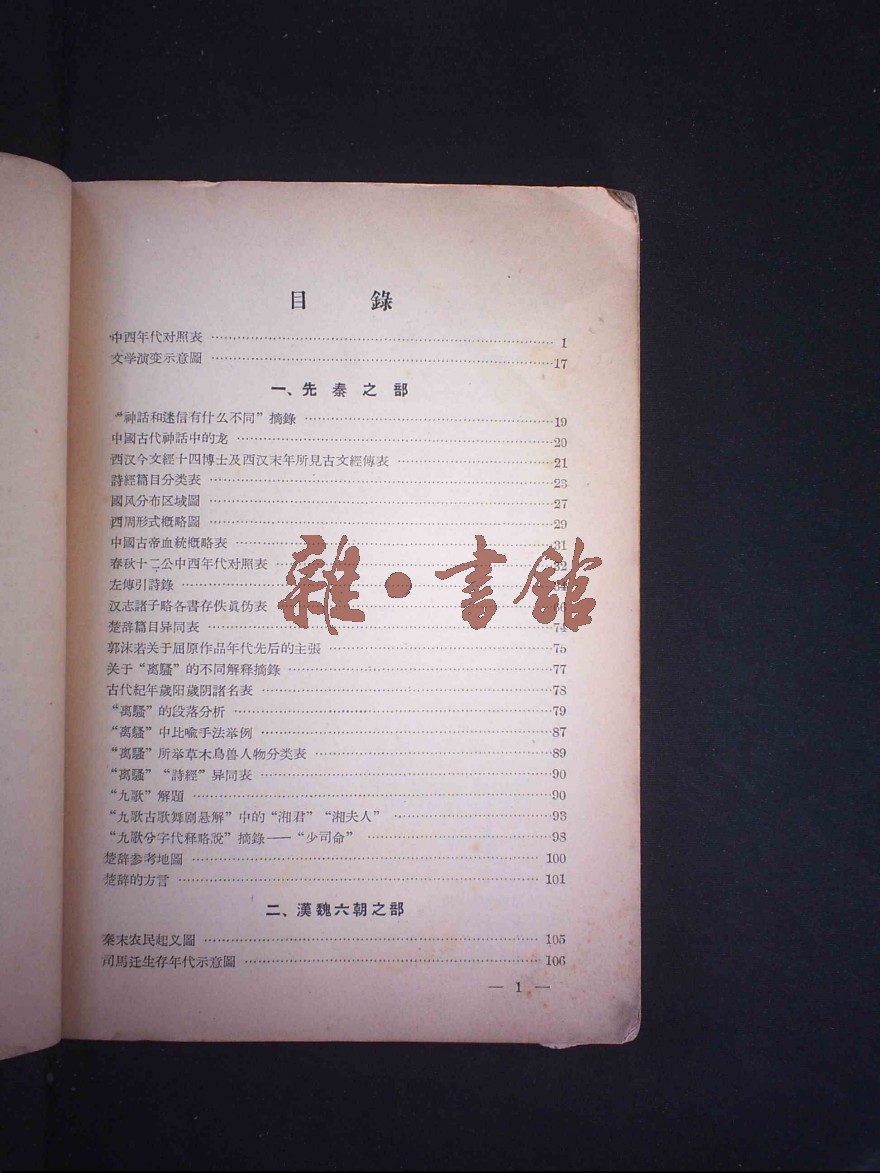 目 錄
中西年代对照表 1
文学演变示意圖 17
一、先秦之部
“神話和迷信有什么不同”摘錄 19
中國古代神話中的龙 20
西汉今文經十四博士及西汉末年所見古文經傳表 21
詩經篇目分类表 23
國风分布区域圖 27
西周形式槪略圖 29
中國古帝血統槪略表 31
春秋十二公中西年代对照表
左傳引詩錄
汉志諸子略各書存佚眞伪表 66
楚辞篇目异同表 74
郭沫若关于屈原作品年代先后的主張 75
关于“离騷”的不同解释摘錄 77
古代紀年歲阳歲阴諸名表 78
“离騷”的段落分析 79
“离騷”中比喩手法举例 87
“离騷”所举草木鳥兽人物分类表 89
“离騷”“詩經”异同表 90
“九歌”解題 90
“九歌古歌舞剧悬解”中的“湘君”“湘夫人” 93
“九歌分字代释略說”摘錄——“少司命” 98
楚辞参考地圖 100
楚辞的方言 101
二、漢魏六朝之部
秦末农民起义圖 105
司馬迁生存年代示意圖 106
— 1 —
雜·書館